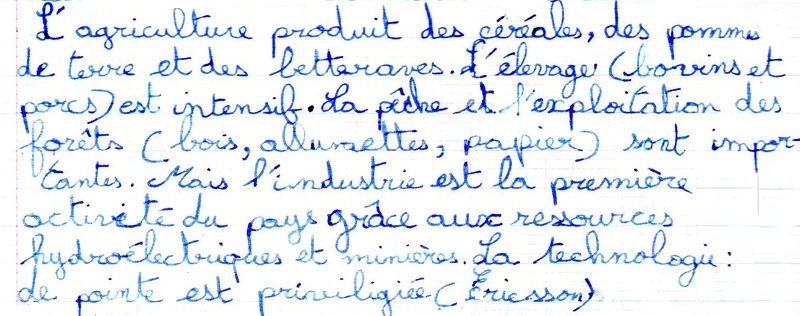 L'agriculture produit des céréales, des pommes
de terre et des betteraves. L'élevage (bovins et
porcs) est intensif. La pêche et l'exploitation des
forêts (bois, allumettes, papier) sont impor-
tantes. Mais l'industrie est la première
activité du pays grâce aux ressources
hydroélectriques et minières. La technologie :
de pointe est priviligiée (Ericsson)